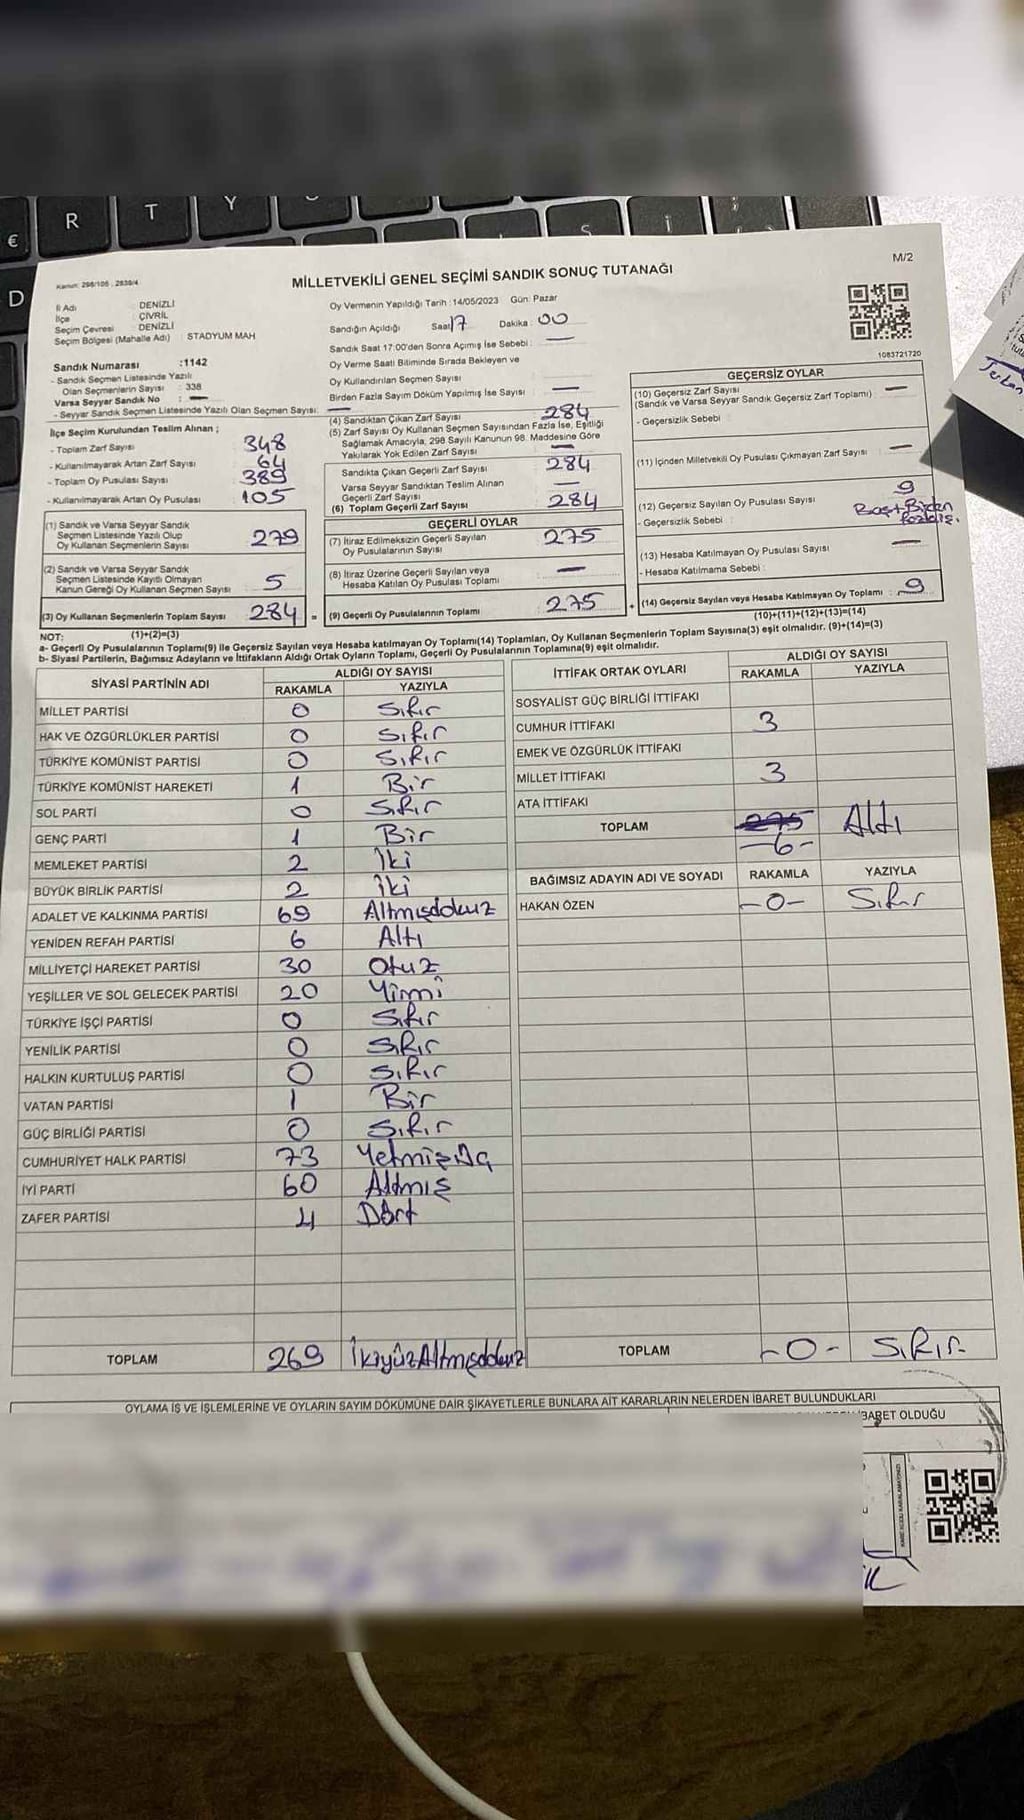 R T Y
€
D
M/2
Kanun: 298/105 , 2839/4
MİLLETVEKİLİ GENEL SEÇİMİ SANDIK SONUÇ TUTANAĞI
İl Adı : DENİZLİ
İlçe : ÇİVRİL
Seçim Çevresi : DENİZLİ
Seçim Bölgesi (Mahalle Adı) : STADYUM MAH
Oy Vermenin Yapıldığı Tarih :14/05/2023 Gün: Pazar
Sandığın Açıldığı Saat 17 Dakika : 00
Sandık Saat 17:00'den Sonra Açımış İse Sebebi : —
Oy Verme Saati Bitiminde Sırada Bekleyen ve
Oy Kullandırılan Seçmen Sayısı : —
Birden Fazla Sayım Döküm Yapılmış İse Sayısı : —
1083721720
Sandık Numarası :1142
- Sandık Seçmen Listesinde Yazılı
Olan Seçmenlerin Sayısı : 338
Varsa Seyyar Sandık No : —
- Seyyar Sandık Seçmen Listesinde Yazılı Olan Seçmen Sayısı: —
İlçe Seçim Kurulundan Teslim Alınan ;
- Toplam Zarf Sayısı 348
- Kullanılmayarak Artan Zarf Sayısı 64
- Toplam Oy Pusulası Sayısı 389
- Kullanılmayarak Artan Oy Pusulası 105
(1) Sandık ve Varsa Seyyar Sandık
Seçmen Listesinde Yazılı Olup
Oy Kullanan Seçmenlerin Sayısı 279
(2) Sandık ve Varsa Seyyar Sandık
Seçmen Listesinde Kayıtlı Olmayan
Kanun Gereği Oy Kullanan Seçmen Sayısı 5
(3) Oy Kullanan Seçmenlerin Toplam Sayısı 284 =
(1)+(2)=(3)
(4) Sandıktan Çıkan Zarf Sayısı 284
(5) Zarf Sayısı Oy Kullanan Seçmen Sayısından Fazla İse, Eşitliği
Sağlamak Amacıyla, 298 Sayılı Kanunun 98. Maddesine Göre
Yakılarak Yok Edilen Zarf Sayısı —
Sandıkta Çıkan Geçerli Zarf Sayısı 284
Varsa Seyyar Sandıktan Teslim Alınan
Geçerli Zarf Sayısı —
(6) Toplam Geçerli Zarf Sayısı 284
GEÇERLİ OYLAR
(7) İtiraz Edilmeksizin Geçerli Sayılan
Oy Pusulalarının Sayısı 275
(8) İtiraz Üzerine Geçerli Sayılan veya
Hesaba Katılan Oy Pusulası Toplamı —
(9) Geçerli Oy Pusulalarının Toplamı 275 +
GEÇERSİZ OYLAR
(10) Geçersiz Zarf Sayısı —
(Sandık ve Varsa Seyyar Sandık Geçersiz Zarf Toplamı) :
- Geçersizlik Sebebi :
(11) İçinden Milletvekili Oy Pusulası Çıkmayan Zarf Sayısı —
(12) Geçersiz Sayılan Oy Pusulası Sayısı 9
- Geçersizlik Sebebi :
(13) Hesaba Katılmayan Oy Pusulası Sayısı —
- Hesaba Katılmama Sebebi :
(14) Geçersiz Sayılan veya Hesaba Katılmayan Oy Toplamı : 9
(10)+(11)+(12)+(13)=(14)
NOT:
a- Geçerli Oy Pusulalarının Toplamı(9) ile Geçersiz Sayılan veya Hesaba katılmayan Oy Toplamı(14) Toplamları, Oy Kullanan Seçmenlerin Toplam Sayısına(3) eşit olmalıdır. (9)+(14)=(3)
b- Siyasi Partilerin, Bağımsız Adayların ve İttifakların Aldığı Ortak Oyların Toplamı, Geçerli Oy Pusulalarının Toplamına(9) eşit olmalıdır.
SİYASİ PARTİNİN ADI ALDIĞI OY SAYISI
RAKAMLA YAZIYLA
MİLLET PARTİSİ 0 Sıfır
HAK VE ÖZGÜRLÜKLER PARTİSİ 0 Sıfır
TÜRKİYE KOMÜNİST PARTİSİ 0 Sıfır
TÜRKİYE KOMÜNİST HAREKETİ 1 Bir
SOL PARTİ 0 Sıfır
GENÇ PARTİ 1 Bir
MEMLEKET PARTİSİ 2 İki
BÜYÜK BİRLİK PARTİSİ 2 iki
ADALET VE KALKINMA PARTİSİ 69 Altmışdokuz
YENİDEN REFAH PARTİSİ 6 Altı
MİLLİYETÇİ HAREKET PARTİSİ 30 Otuz
YEŞİLLER VE SOL GELECEK PARTİSİ 20 Yirmi
TÜRKİYE İŞÇİ PARTİSİ 0 Sıfır
YENİLİK PARTİSİ 0 Sıfır
HALKIN KURTULUŞ PARTİSİ 0 Sıfır
VATAN PARTİSİ 1 Bir
GÜÇ BİRLİĞİ PARTİSİ 0 Sıfır
CUMHURİYET HALK PARTİSİ 73 YetmişÜç
İYİ PARTİ 60 Altmış
ZAFER PARTİSİ 4 Dört
TOPLAM 269 İkiyüzAltmışdokuz
İTTİFAK ORTAK OYLARI ALDIĞI OY SAYISI
RAKAMLA YAZIYLA
SOSYALİST GÜÇ BİRLİĞİ İTTİFAKI
CUMHUR İTTİFAKI 3
EMEK VE ÖZGÜRLÜK İTTİFAKI
MİLLET İTTİFAKI 3
ATA İTTİFAKI
TOPLAM 275 Altı
-6-
BAĞIMSIZ ADAYIN ADI VE SOYADI RAKAMLA YAZIYLA
HAKAN ÖZEN -0- Sıfır
TOPLAM -0- SıFıR
OYLAMA İŞ VE İŞLEMLERİNE VE OYLARIN SAYIM DÖKÜMÜNE DAİR ŞİKAYETLERLE BUNLARA AİT KARARLARIN NELERDEN İBARET BULUNDUKLARI
İBARET OLDUĞU